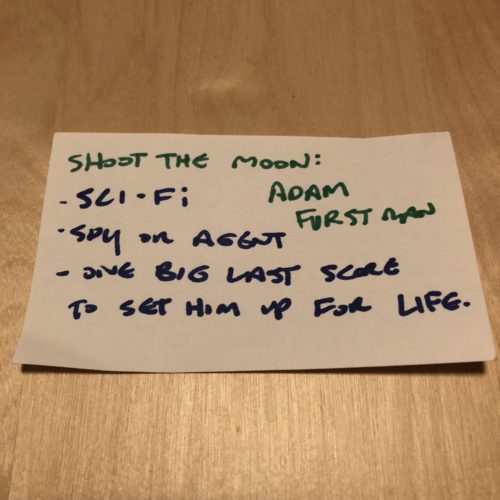 SHOOT THE MOON:
- SCI-Fi
ADAM
FURST MAN
- SPY OR AGENT
- ONE BIG LAST SCORE
TO SET HIM UP FOR LIFE.